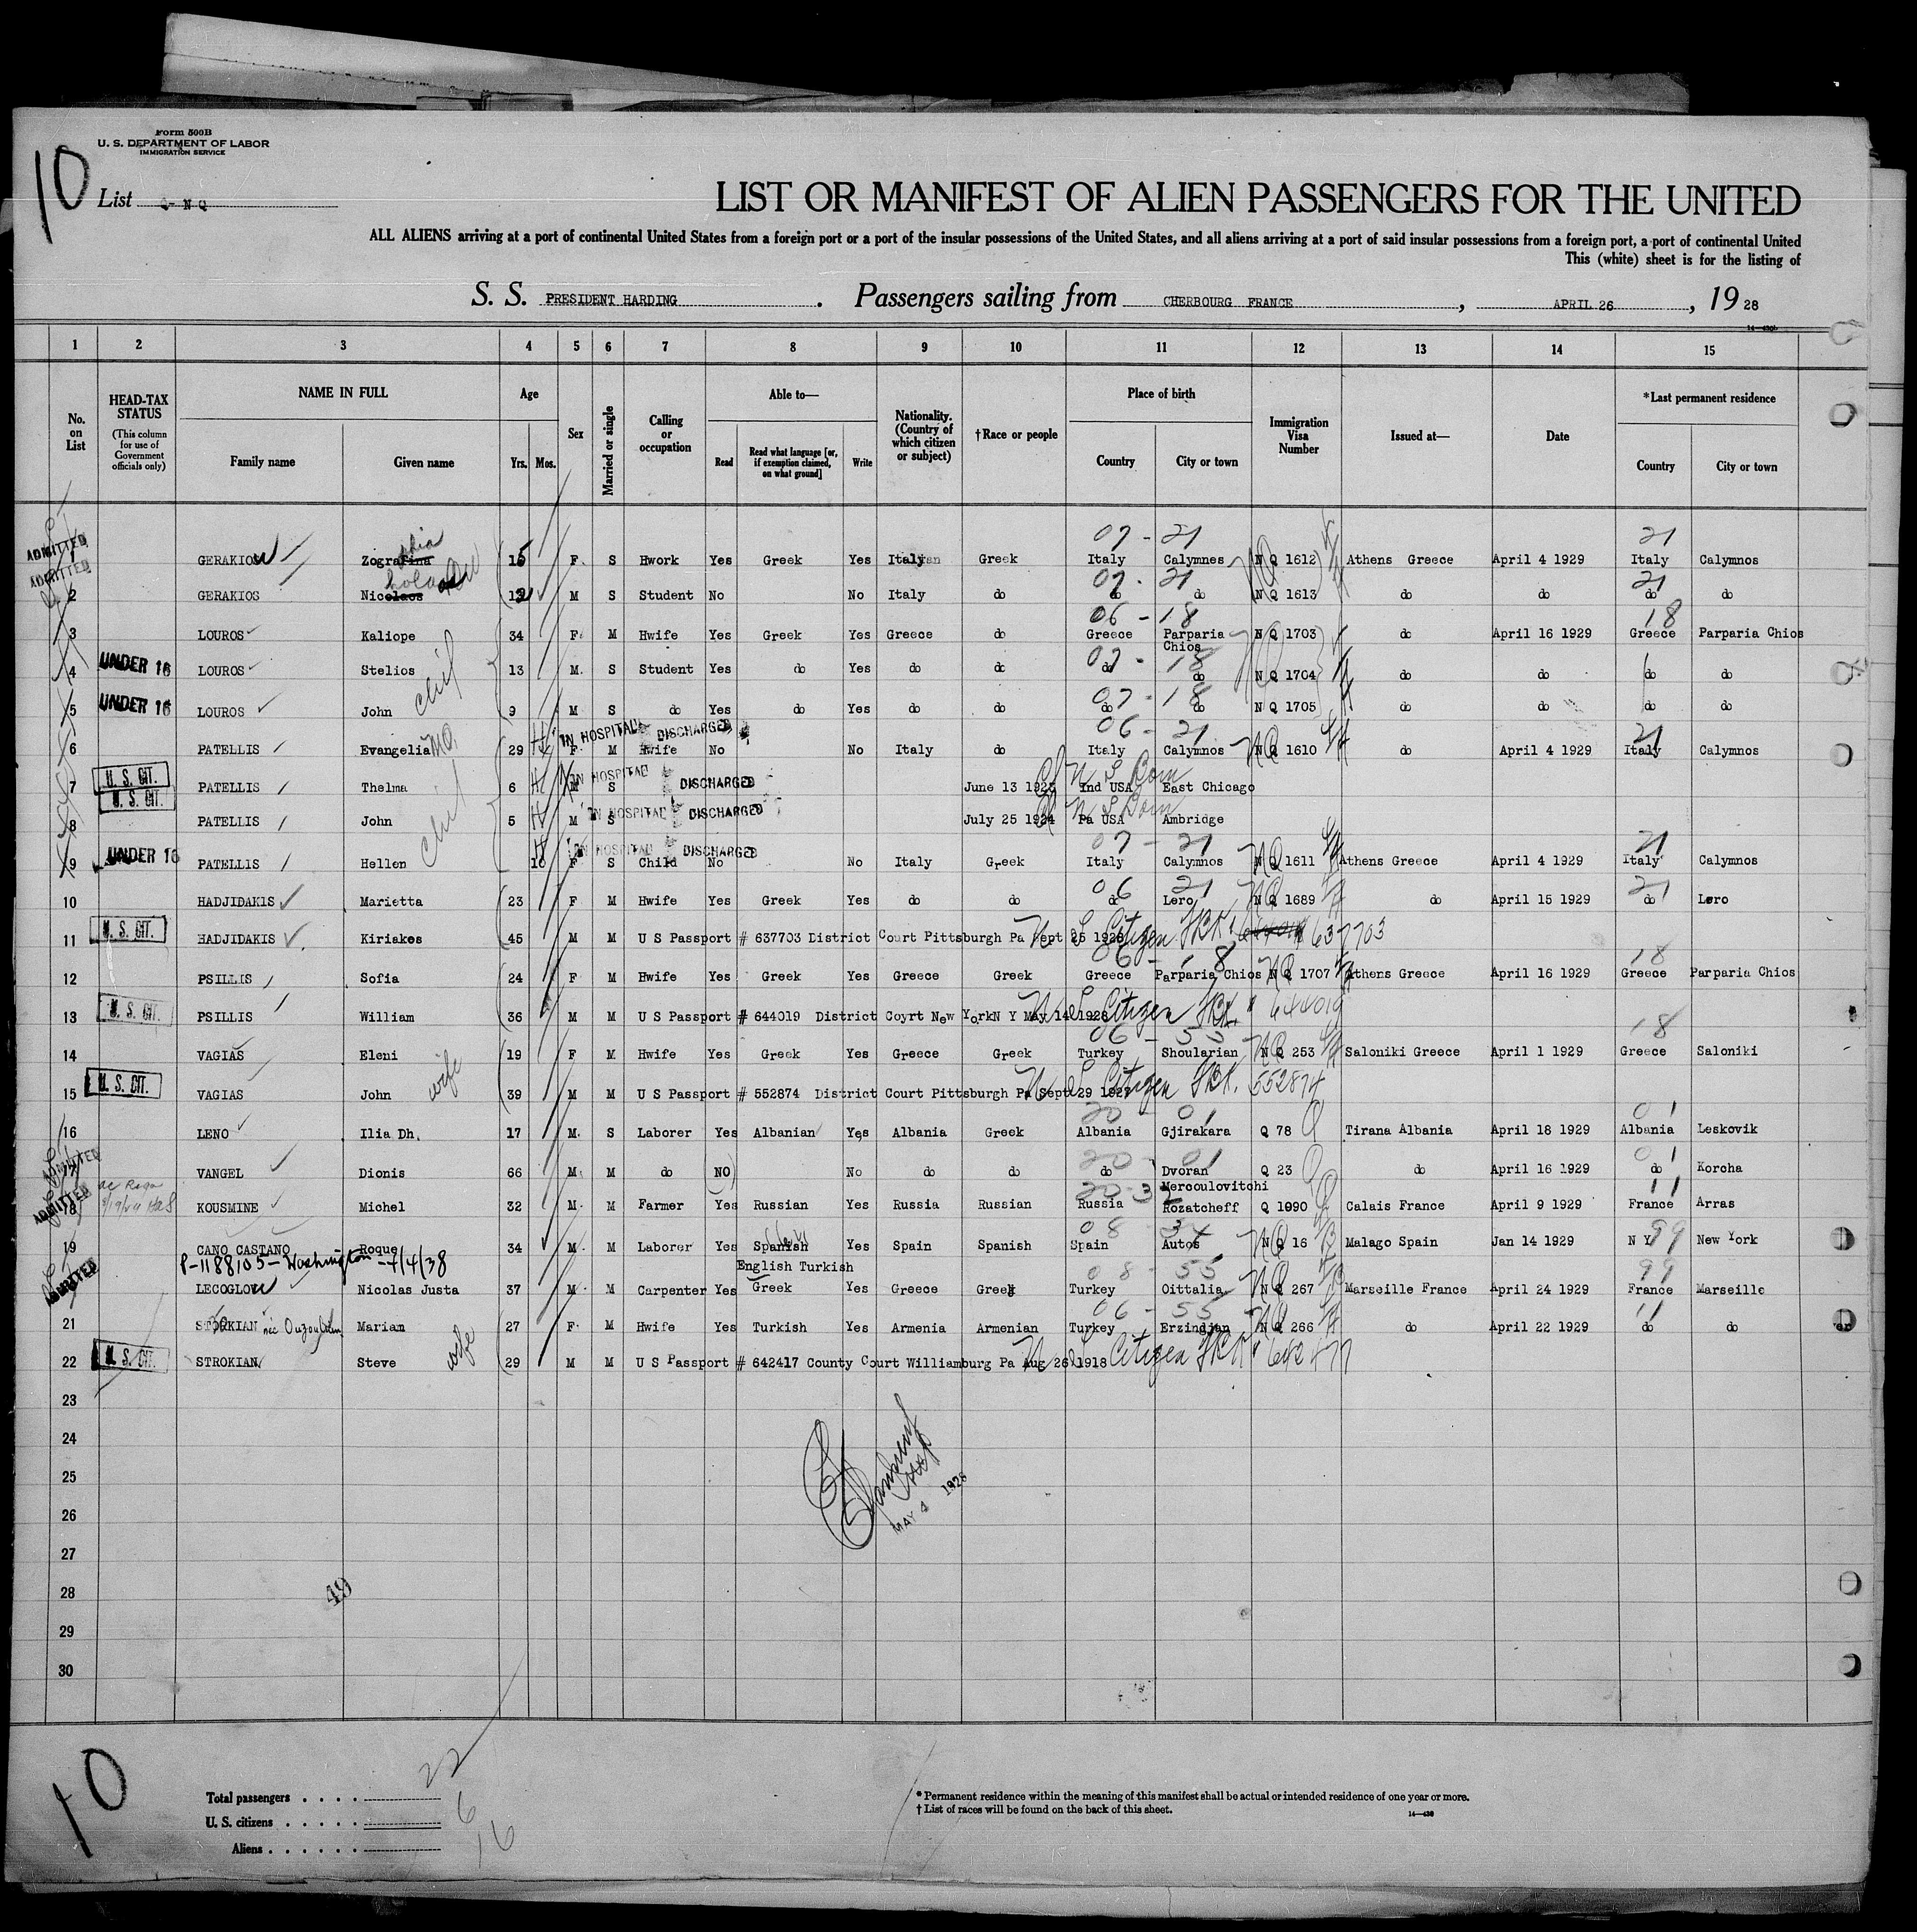 Form 500B
U. S. DEPARTMENT OF LABOR
IMMIGRATION SERVICE
10
List Q-NQ
LIST OR MANIFEST OF ALIEN PASSENGERS FOR THE UNITED
ALL ALIENS arriving at a port of continental United States from a foreign port or a port of the insular possessions of the United States, and all aliens arriving at a port of said insular possessions from a foreign port, a port of continental United
This (white) sheet is for the listing of
S. S. PRESIDENT HARDING . Passengers sailing from CHERBOURG FRANCE , APRIL 26 , 19 28
1 2 3 4 5 6 7 8 9 10 11 12 13 14 15
No. on List
HEAD-TAX STATUS (This column for use of Government officials only)
NAME IN FULL Family name Given name
Age Yrs. Mos.
Sex
Married or single
Calling or occupation
Able to— Read Read what language [or, if exemption claimed, on what ground] Write
Nationality. (Country of which citizen or subject)
†Race or people
Place of birth Country City or town
Immigration Visa Number
Issued at—
Date
*Last permanent residence Country City or town
07 - 21 21
ADMITTED GERAKIOS Zografina 15 F. S Hwork Yes Greek Yes Italyan Greek Italy Calymnes N Q 1612 Athens Greece April 4 1929 Italy Calymnos
ADMITTED
07 - 21 21
2 GERAKIOS Nicolaos 12 M S Student No No Italy do do do N Q 1613 do do do do
06 - 18 18
3 LOUROS Kaliope 34 F. M Hwife Yes Greek Yes Greece do Greece Parparia Chios N Q 1703 do April 16 1929 Greece Parparia Chios
07 - 18
4 UNDER 16 LOUROS Stelios 13 M. S Student Yes do Yes do do do do N Q 1704 do do do do
07 - 18
5 UNDER 16 LOUROS John 9 M S do Yes do Yes do do do do N Q 1705 do do do do
IN HOSPITAL DISCHARGED 06 - 21 21
6 PATELLIS Evangelia 29 F. M Hwife No No Italy do Italy Calymnos N Q 1610 do April 4 1929 Italy Calymnos
7 U. S. CIT. PATELLIS Thelma 6 M S IN HOSPITAL DISCHARGED June 13 1923 Ind USA East Chicago
U. S. CIT.
8 PATELLIS John 5 M S IN HOSPITAL DISCHARGED July 25 1924 Pa USA Ambridge
IN HOSPITAL DISCHARGED 07 - 21 21
9 UNDER 16 PATELLIS Hellen 10 F S Child No No Italy Greek Italy Calymnos N Q 1611 Athens Greece April 4 1929 Italy Calymnos
06 21 21
10 HADJIDAKIS Marietta 23 F M Hwife Yes Greek Yes do do do Lero N Q 1689 do April 15 1929 do Lero
11 U. S. CIT. HADJIDAKIS Kiriakos 45 M M U S Passport # 637703 District Court Pittsburgh Pa Sept 25 1928 Citizen 637703
18
12 PSILLIS Sofia 24 F M Hwife Yes Greek Yes Greece Greek Greece Parparia Chios N Q 1707 Athens Greece April 16 1929 Greece Parparia Chios
13 U. S. CIT. PSILLIS William 36 M M U S Passport # 644019 District Coyrt New York N Y May 14 1928 Citizen 644019
06 - 55 18
14 VAGIAS Eleni wife 19 F M Hwife Yes Greek Yes Greece Greek Turkey Shoularian N Q 253 Saloniki Greece April 1 1929 Greece Saloniki
15 U. S. CIT. VAGIAS John 39 M M U S Passport # 552874 District Court Pittsburgh Pa Sept 29 1927 Citizen 552874
20 - 01 01
16 LENO Ilia Dh. 17 M. S Laborer Yes Albanian Yes Albania Greek Albania Gjirakara Q 78 Tirana Albania April 18 1929 Albania Leskovik
ADMITTED 20 - 01 01
17 VANGEL Dionis 66 M. M do NO No do do do Dvoran Q 23 do April 16 1929 do Korcha
ADMITTED Mercoulovitchi
18 KOUSMINE Michel 32 M. M Farmer Yes Russian Yes Russia Russian Russia Rozatcheff Q 1090 Calais France April 9 1929 France Arras
08 - 34 99
19 CANO CASTANO Roque 34 M. M Laborer Yes Spanish Yes Spain Spanish Spain Autos N Q 16 Malago Spain Jan 14 1929 N Y New York
P-1188105-Washington-4/4/38
English Turkish
ADMITTED 08 - 55 99
LECOGLOU Nicolas Justa 37 M. M Carpenter Yes Greek Yes Greece Greek Turkey Oittalia N Q 267 Marseille France April 24 1929 France Marseille
06 - 55 11
21 STROKIAN Mariam wife 27 F. M Hwife Yes Turkish Yes Armenia Armenian Turkey Erzindjan N Q 266 do April 22 1929 do do
22 U. S. CIT. STROKIAN Steve 29 M M U S Passport # 642417 County Court Williamburg Pa Aug 26 1918 Citizen
23
24
25
MAY 4 1928
26
27
28
49
29
30
10
Total passengers . . . . 22
U. S. citizens . . . . . 6
Aliens . . . . . . 16
* Permanent residence within the meaning of this manifest shall be actual or intended residence of one year or more.
† List of races will be found on the back of this sheet.
14—430